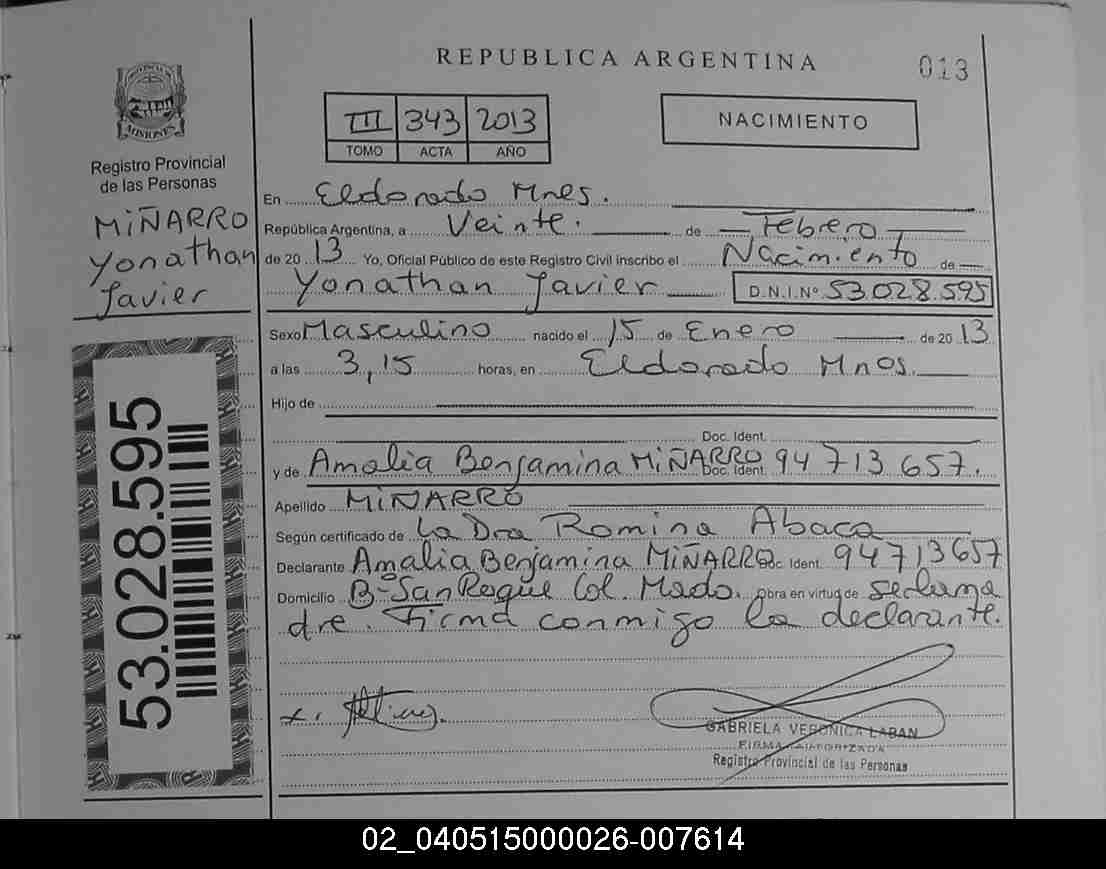 REPUBLICA ARGENTINA
013
PROVINCIA DE
MISIONES
Registro Provincial
de las Personas
MIÑARRO
Yonathan
Javier
53.028.595
III 343 2013
TOMO ACTA AÑO
NACIMIENTO
En Eldorado Mnes.
República Argentina, a Veinte. de Febrero
de 20 13 Yo, Oficial Público de este Registro Civil inscribo el Nacimiento de
Yonathan Javier D.N.I.Nº 53.028.595
Sexo Masculino nacido el 15 de Enero de 20 13
a las 3,15 horas, en Eldorado Mnos.
Hijo de
Doc. Ident.
y de Amalia Benjamina MIÑARRO Doc. Ident. 94 713 657.
Apellido MIÑARRO
Según certificado de La Dra Romina Abaca
Declarante Amalia Benjamina MIÑARRO Doc. Ident. 94713657
Domicilio Bº San Roque Col. Mado. obra en virtud de
dre. Firma conmigo la declarante.
x.
GABRIELA VERONICA LABAN
FIRMA AUTORIZADA
Registro Provincial de las Personas
02_040515000026-007614